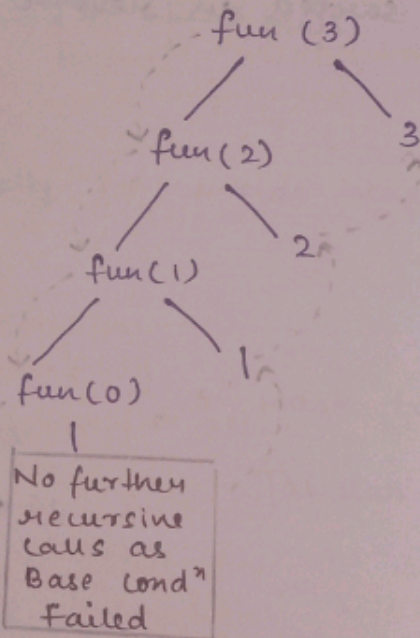 fun (3)
3
fun(2)
2
fun(1)
1
fun(0)
No further
recursive
calls as
Base condⁿ
Failed